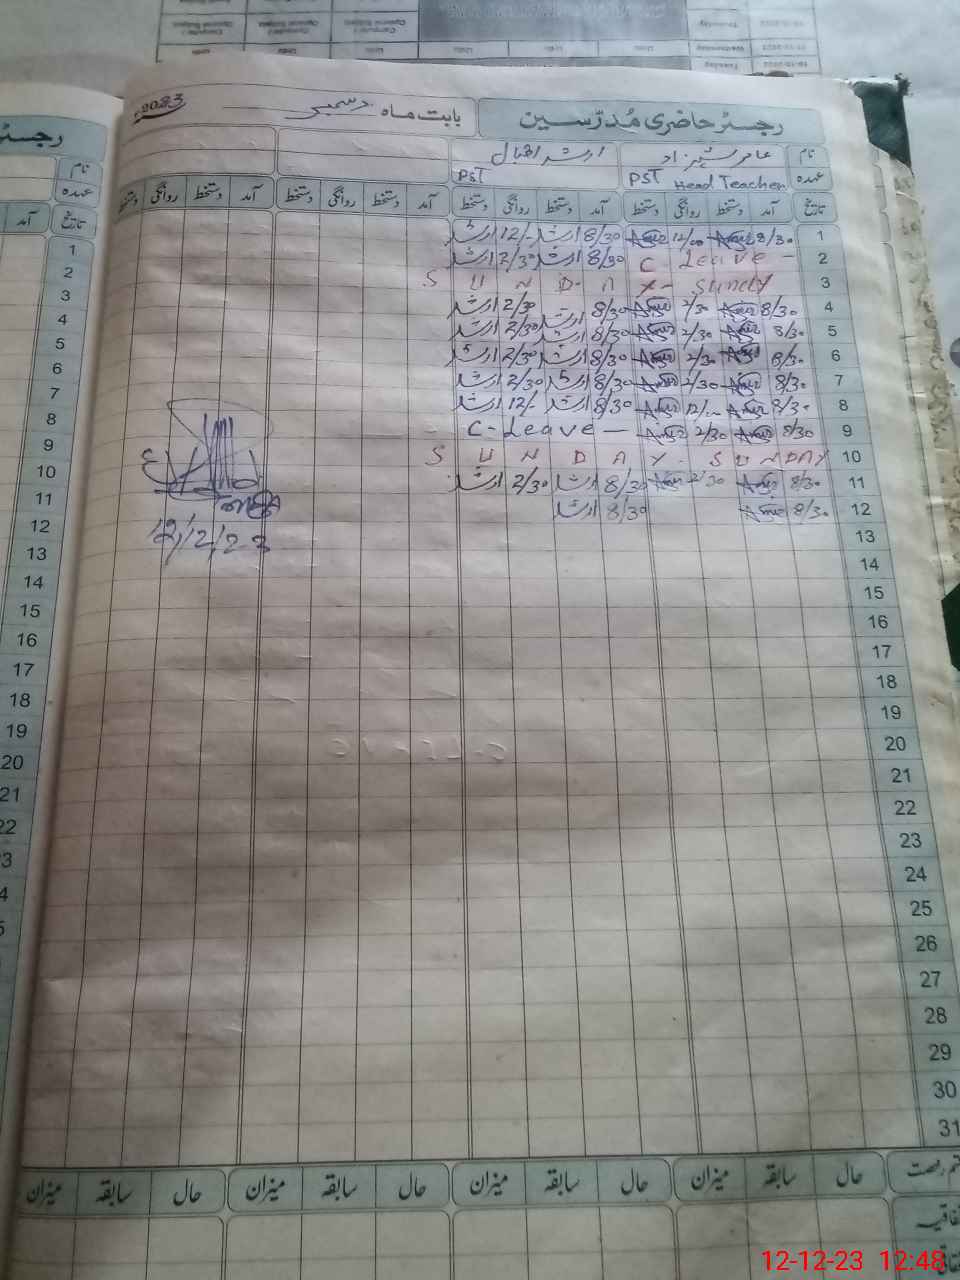 رجسٹر حاضری مُدرّسین بابت ماہ دسمبر 2023ء
نام عامر شہزاد ارشد اقبال
عہدہ PST Head Teacher PST
تاریخ آمد دستخط روانگی دستخط آمد دستخط روانگی دستخط آمد دستخط روانگی دستخط آمد دستخط روانگی دستخط
1 8/30 Amir 12/00 Amir 8/30 ارشد 12/- ارشد
2 C Leave - 8/30 ارشد 2/30 ارشد
3 S U N D A Y - Sundy
4 8/30 Amir 2/30 Amir 8/30 ارشد 2/30 ارشد
5 8/30 Amir 2/30 Amir 8/30 ارشد 2/30 ارشد
6 8/30 Amir 2/30 Amir 8/30 ارشد 2/30 ارشد
7 8/30 Amir 2/30 Amir 8/30 ارشد 2/30 ارشد
8 8/30 Amir 12/- Amir 8/30 ارشد 12/- ارشد
9 8/30 Amir 2/30 Amir C - Leave -
10 S U N D A Y - S U N D A Y
11 8/30 Amir 2/30 Amir 8/30 ارشد 2/30 ارشد
12 8/30 Amir 8/30 ارشد
12/12/23
13
14
15
16
17
18
19
20
21
22
23
24
25
26
27
28
29
30
31
حال سابقہ میزان حال سابقہ میزان حال سابقہ میزان حال سابقہ میزان
رجسٹر
نام
عہدہ
تاریخ آمد
1
2
3
4
5
6
7
8
9
10
11
12
13
14
15
16
17
18
19
20
21
22
12-12-23 12:48